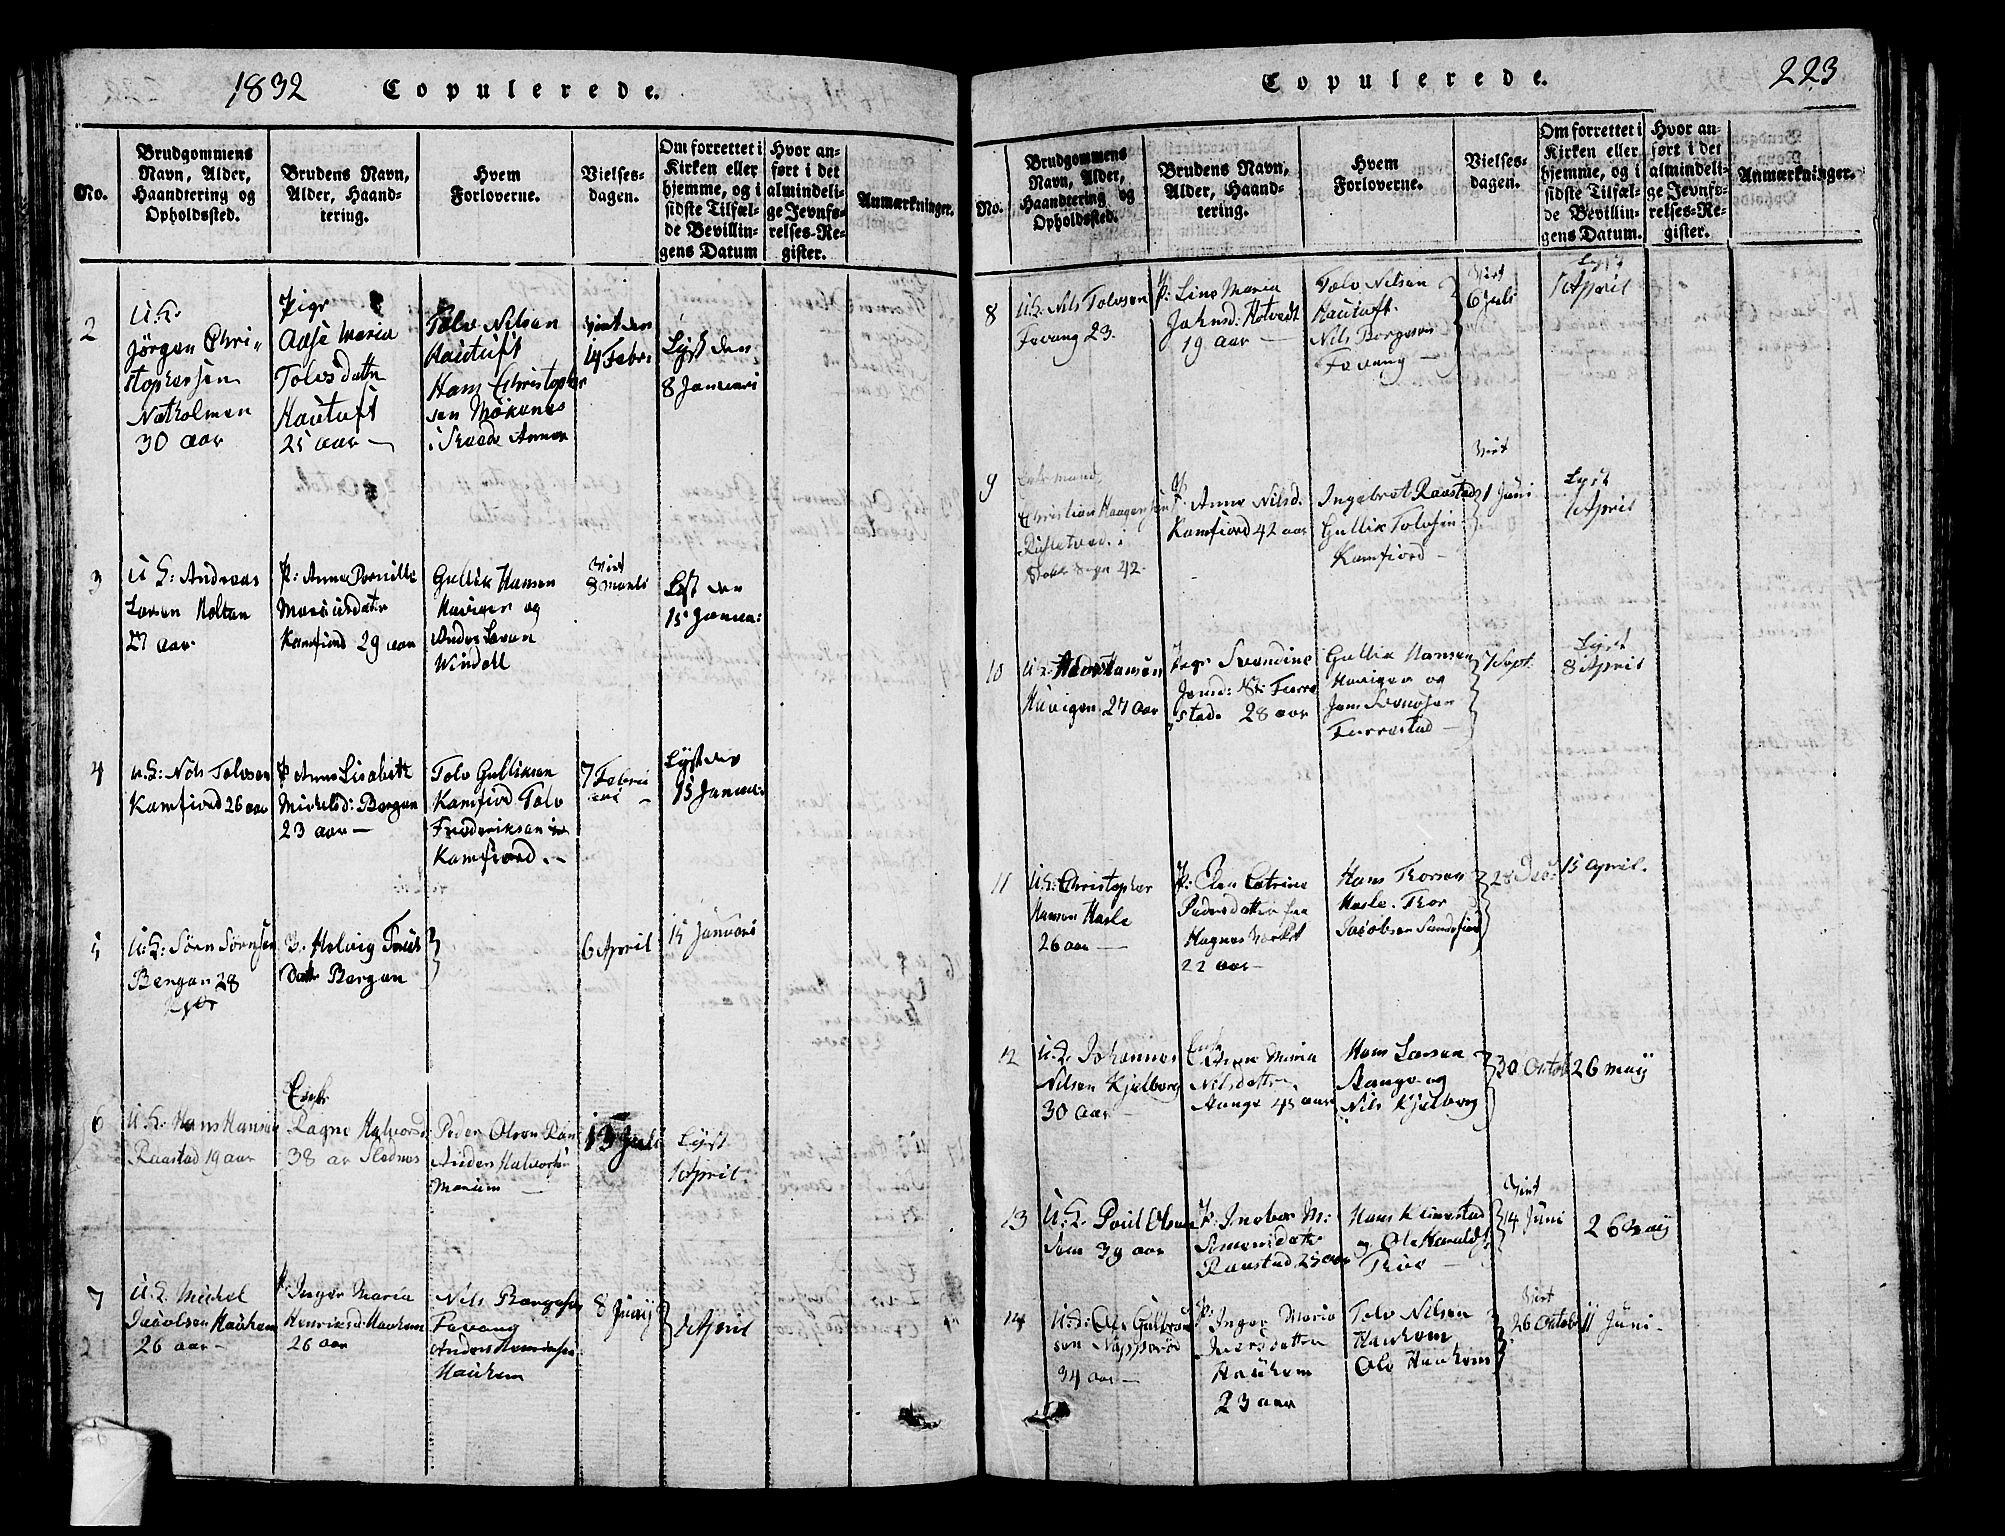 1832
Copulerede.
No.
Brudgommens
Navn, Alder,
Haandtering og
Opholdssted.
Brudens Navn,
Alder, Haand-
tering.
Hvem
Forloverne.
Vielses-
dagen.
Om forrettet i
Kirken eller
hjemme, og i
sidste Tilfæl-
de Bevillin-
gens Datum
Hvor an-
ført i det
almindeli-
ge Jevnfø-
relses-Re-
gister.
Anmærkninger.
2
U.K.
Jörgen Chri-
stophersen
Natholmen
30 aar
Pige
Aase Maria
Tolvsdatte
Hautuft
25 aar
Tolv Nilsen
Hautuft
Hans Christopher
sen
viet den
Febr:
Lyst den
8 Januari
3
U K: Andreas
Larsen Holtan
27 aar
P: Anne Pernille
Kamfiord 29 aar
Gullik Hansen
Huvigen og
Anders Larsen
Windall
viet
8 Marts
Lyst den
15 Janua:
4
U.K: Nils Tolvsen
Kamfiord 26 aar
P Anne Lisabeth
Mickelsd: Bergan
23 aar
Tolv Gulliksen
Kamfiord Tolv
Frederiksen
Kamfiord
7 Febru
Lyst den
15 Janua.
5
U.K: Sörn Sörnsen
Bergan 28
P. Helvig
Datte Bergan
6 April
15 Januari
6
U.K. Hans Hansen
Raastad 19 aar
Enke
Ragne Halvorsd:
38 ar
Peder Olsen
Anders Halvorsen
13 Juli
Lyst
1 April
7
U.K. Mickel
Jacobsen Haukem
26 aar
P. Inger Maria
Henriksd: Haukem
26 aar
Nils Borgesen
Fevang
Anders Henriksen
Haukem
8 Junij
1 April
Copulerede.
223
No.
Brudgommens
Navn, Alder,
Haandtering og
Opholdssted.
Brudens Navn,
Alder, Haand-
tering.
Hvem
Forloverne.
Vielses-
dagen.
Om forrettet i
Kirken eller
hjemme, og i
sidste Tilfæl-
de Bevillin-
gens Datum.
Hvor an-
ført i det
almindeli-
ge Jevnfø-
relses-Re-
gister.
Anmærkninger.
8
U.K. Nils Tolvsen
Fevang 23.
P: Line Maria
Johnsd: Hotvedt
19 aar
Tolv Nilsen
Hautuft.
Nils Borgesen
Fevang
viet
6 Juli
Lyst
1 April
9
Enkemand,
Christian Haagensen
42
P. Anne Nilsd.
Kamfiord 42 aar
Ingebret Raastad
Gullik Tolvsen
Kamfiord
viet
1 Juni
Lyst
1 April
10
Huvigen 27 aar
Pige
28 aar
Gullik Hansen
Huvigen og
Furrestad
7 Sept.
Lyst
8 April
11
U.K: Christopher
Hansen Hasle
26 aar
P: Elen Catrine
Pedersdatter fra
22 aar
Hans Thorsen
Hasle. Thor
Jacobsen Sandefiord
28 Dec:
15 April.
12
U.K. Johannes
Nilsen Kjelberg
30 aar
Enke
Anne Maria
Nilsdatter
Aange 45 aar
Hans Larsen
Aange og
Nils Kjelberg
30 Octob
26 may
13
U.K. Poul Olsen
Sem 39 aar
P: Ingebor M:
Simensdatte
Raastad 25 aar
Hans Klinestad
og Ole
viet
14 Juni
26 may
14
U.K: Ole Gulbran
sen
34 aar
P:
Inger Maria
Iversdatter
Haukem
23 aar
Tolv Nilsen
Haukem
Ole Haukem
viet
26 Octob
11 Juni